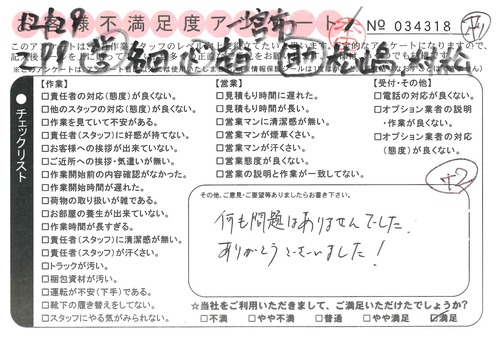 お客様不満足度アンケート
12/29
一宮市
No 034318
【作業】
□責任者の対応(態度)が良くない。
□他のスタッフの対応(態度)が良くない。
□作業を見ていて不安がある。
□責任者(スタッフ)に好感が持てない。
□お客様への挨拶が出来ていない。
□ご近所への挨拶・気遣いが無い。
□作業開始前の内容確認がなかった。
□作業開始時間が遅れた。
□荷物の取り扱いが雑である。
□お部屋の養生が出来ていない。
□作業時間が長すぎる。
□責任者(スタッフ)に清潔感が無い。
□責任者(スタッフ)が汗くさい。
□トラックが汚い。
□梱包資材が汚い。
□運転が不安(下手)である。
□靴下の履き替えをしてない。
□スタッフにやる気がみられない。
チェックリスト
【営業】
□見積もり時間に遅れた。
□見積もり時間が長い。
□営業マンに清潔感が無い。
□営業マンが煙草くさい。
□営業マンが汗くさい。
□営業態度が良くない。
□営業の説明と作業が一致してない。
【受付・その他】
□電話の対応が良くない。
□オプション業者の説明
・作業が良くない。
□オプション業者の対応
(態度)が良くない。
その他、ご意見・ご要望等ありましたらお書き下さい。
何も問題はありませんでした。
ありがとうございました!
☆当社をご利用いただきまして、ご満足いただけたでしょうか?
□不満 □やや不満 □普通 □やや満足 ☑満足